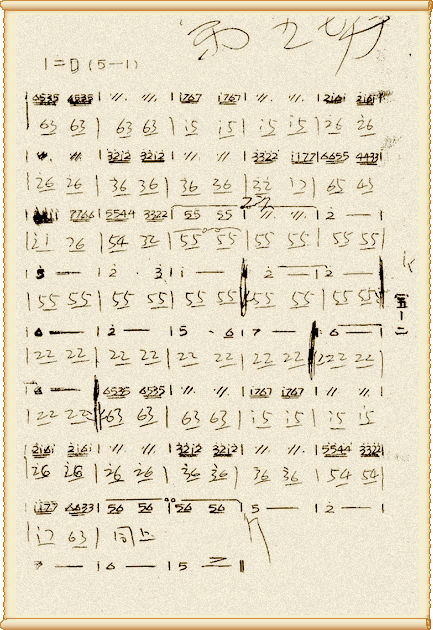 第九场
1=D (5—1)
| 6535 6535 | 〃. 〃. | i767 i767 | 〃. 〃. | 2i6i 2i6i |
63 63 | 63 63 | i5 i5 | i5 i5 | 26 26
| 〃. 〃. | 32i2 32i2 | 〃. 〃. | 3322 i177 | 6655 4433 |
26 26 | 36 36 | 36 36 | 32 17 | 65 43
7766 | 5544 3322 | 55 55 | 〃. 〃. | 2 — |
21 76 | 54 32 | 55 55 | 55 55 | 55 55
| 5 — | 2 · 3 | i — | 2 — | 2 — |
55 55 | 55 55 | 55 55 | 55 55 | 55 55
五—二
| 6 — | 2 — | 5 · 6 | 7 — | 6 — |
22 22 | 22 22 | 22 22 | 22 22 | 22 22
| 6 — | 6535 6535 | 〃. 〃. | i767 i767 | 〃. 〃. |
22 22 | 63 63 | 63 63 | i5 i5 | i5 i5
| 2i6i 2i6i | 〃. 〃. | 32i2 32i2 | 〃. 〃. | 5544 3322 |
26 26 | 26 26 | 36 36 | 36 36 | 54 54
| i177 6633 | 56 56 | 56 56 | 5 — | 2 — |
17 63 | 同上
| 7 — | 6 — | 5 — ‖